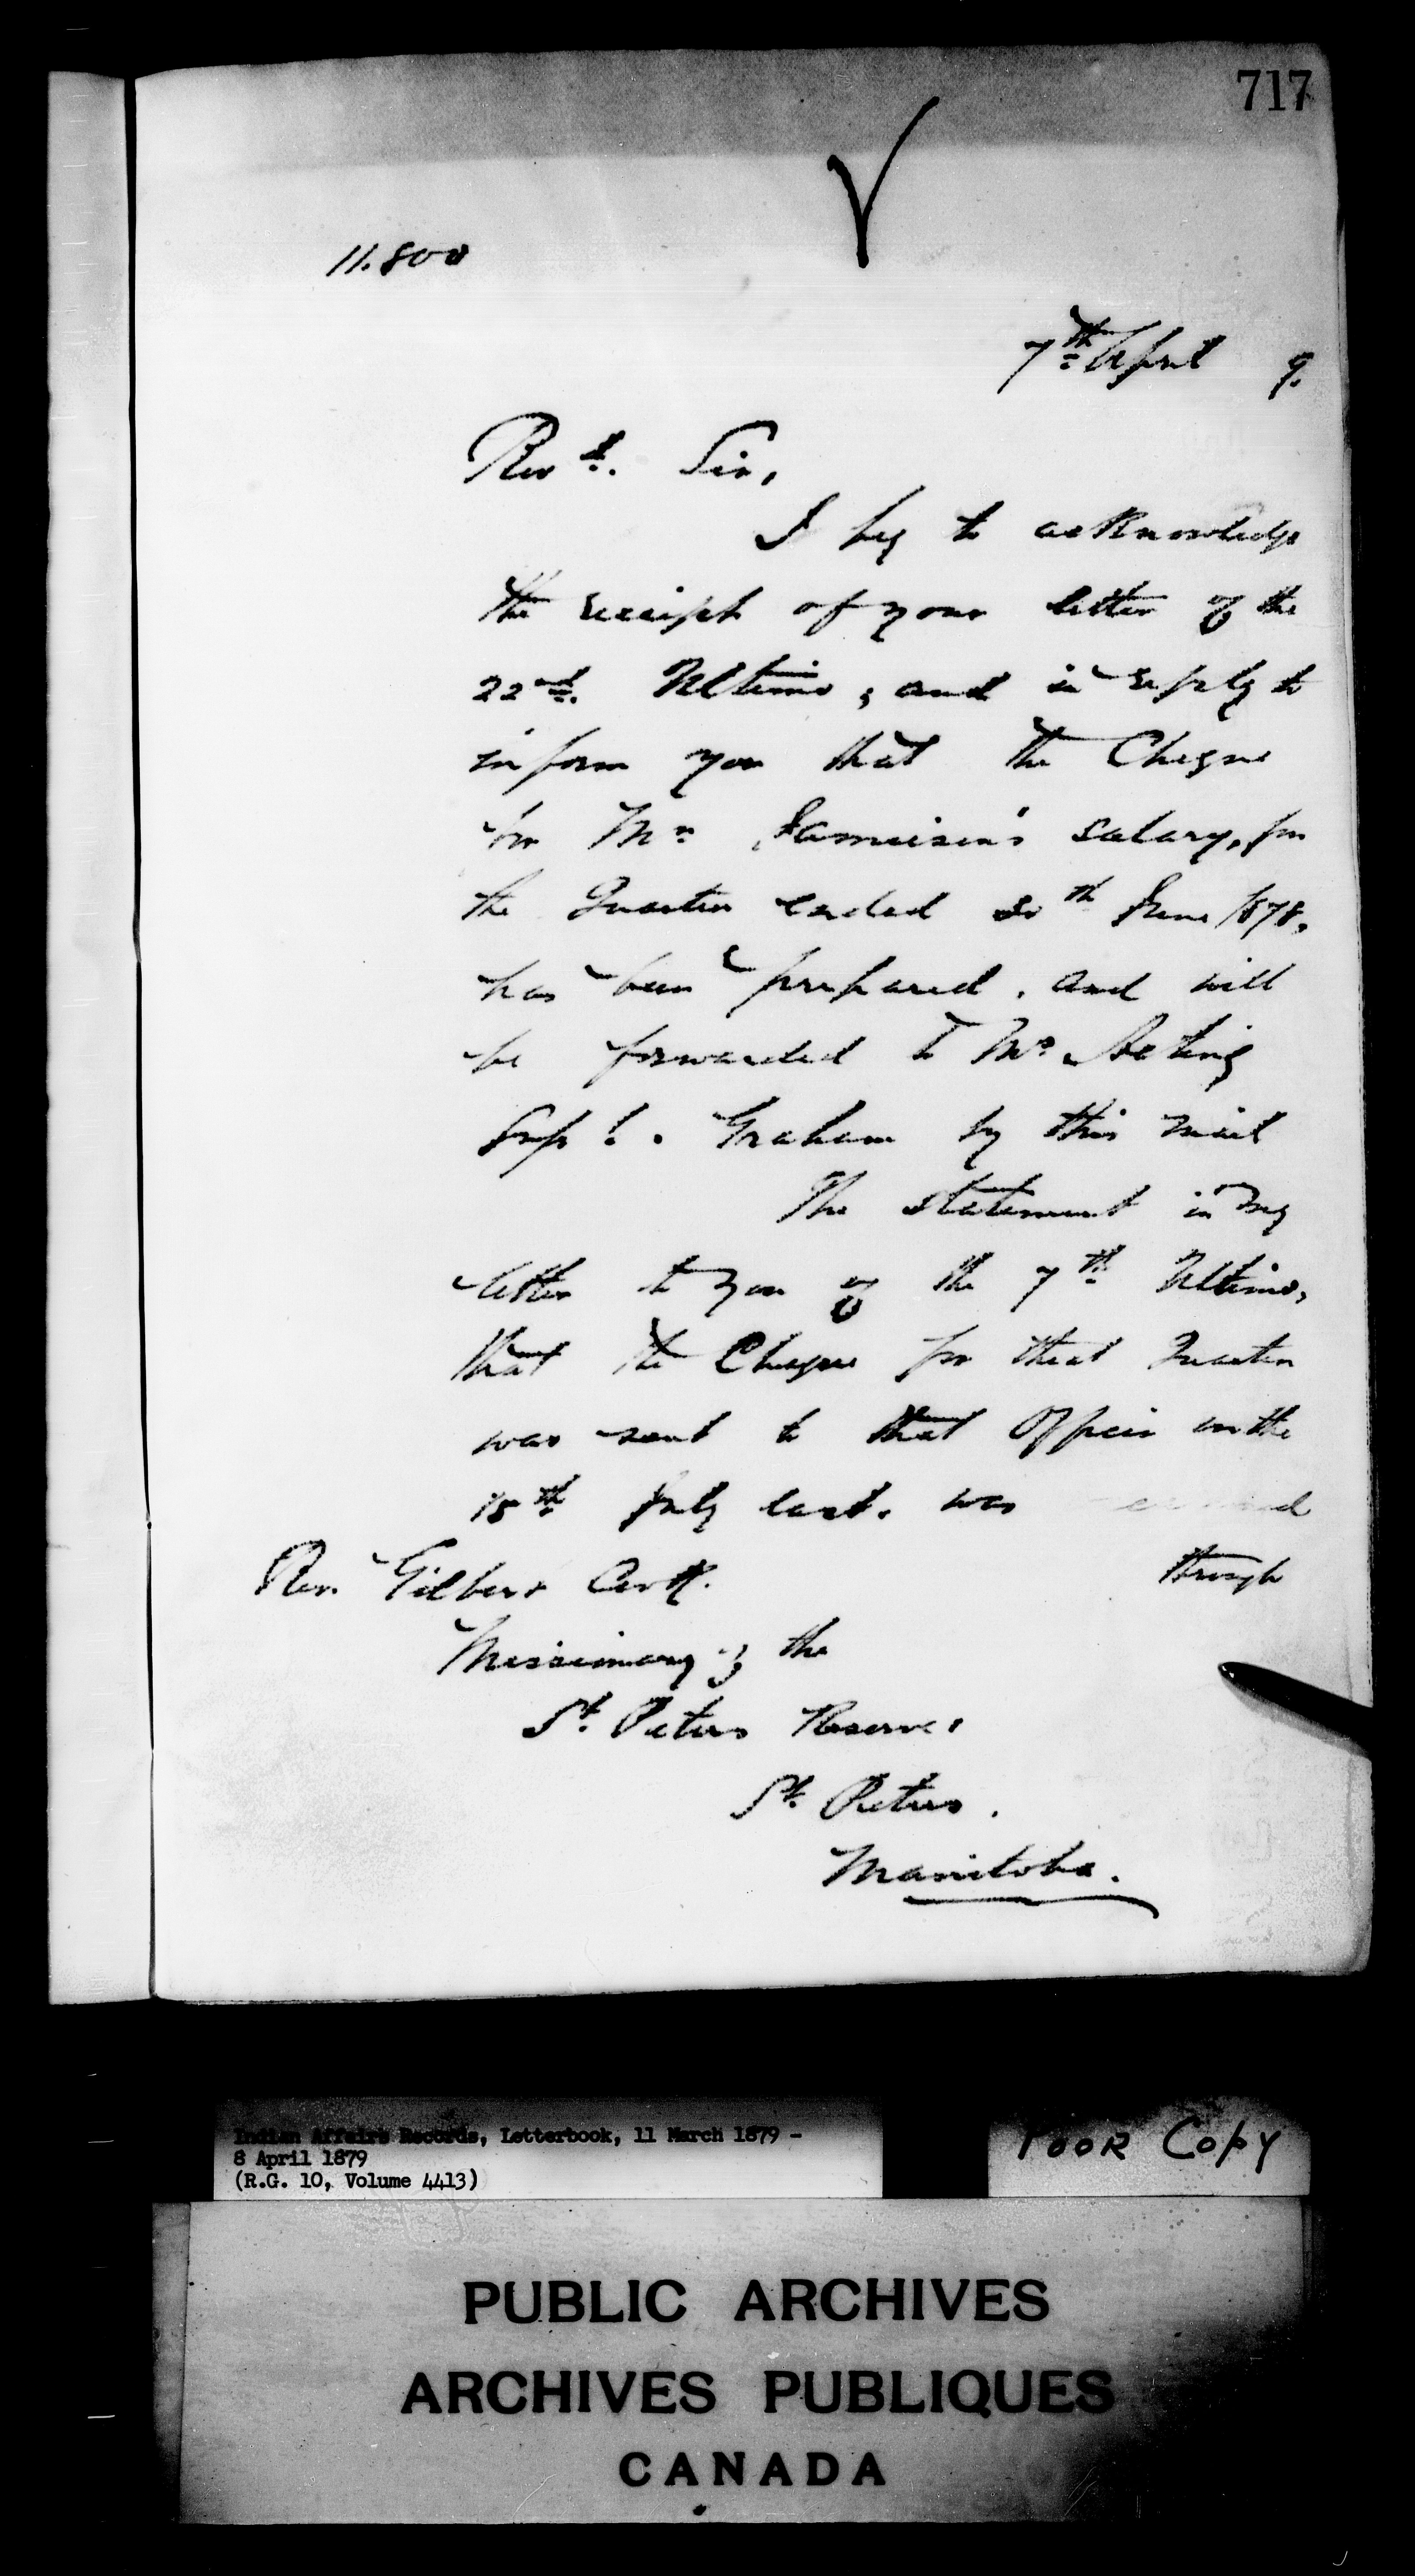 717
11.800
7th April 9.
Revd. Sir,
I beg to acknowledge
the receipt of your letter of the
22nd. Ultimo, and in reply to
inform you that the Cheque
for Mr Jameison's salary, for
the Quarter ended 30th June 1878,
has been prepared, and will
be forwarded to Mr. Acting
Supt. Graham by this mail
The statement in my
letter to you of the 7th Ultimo,
that the Cheque for that Quarter
was sent to that Officer on the
15th July last. was
through
Rev. Gilbert Cook.
Missionary of the
St. Peters Reserve,
St. Peters.
Manitoba.
Indian Affairs Records, Letterbook, 11 March 1879 -
8 April 1879
(R.G. 10, Volume 4413)
POOR COPY
PUBLIC ARCHIVES
ARCHIVES PUBLIQUES
CANADA